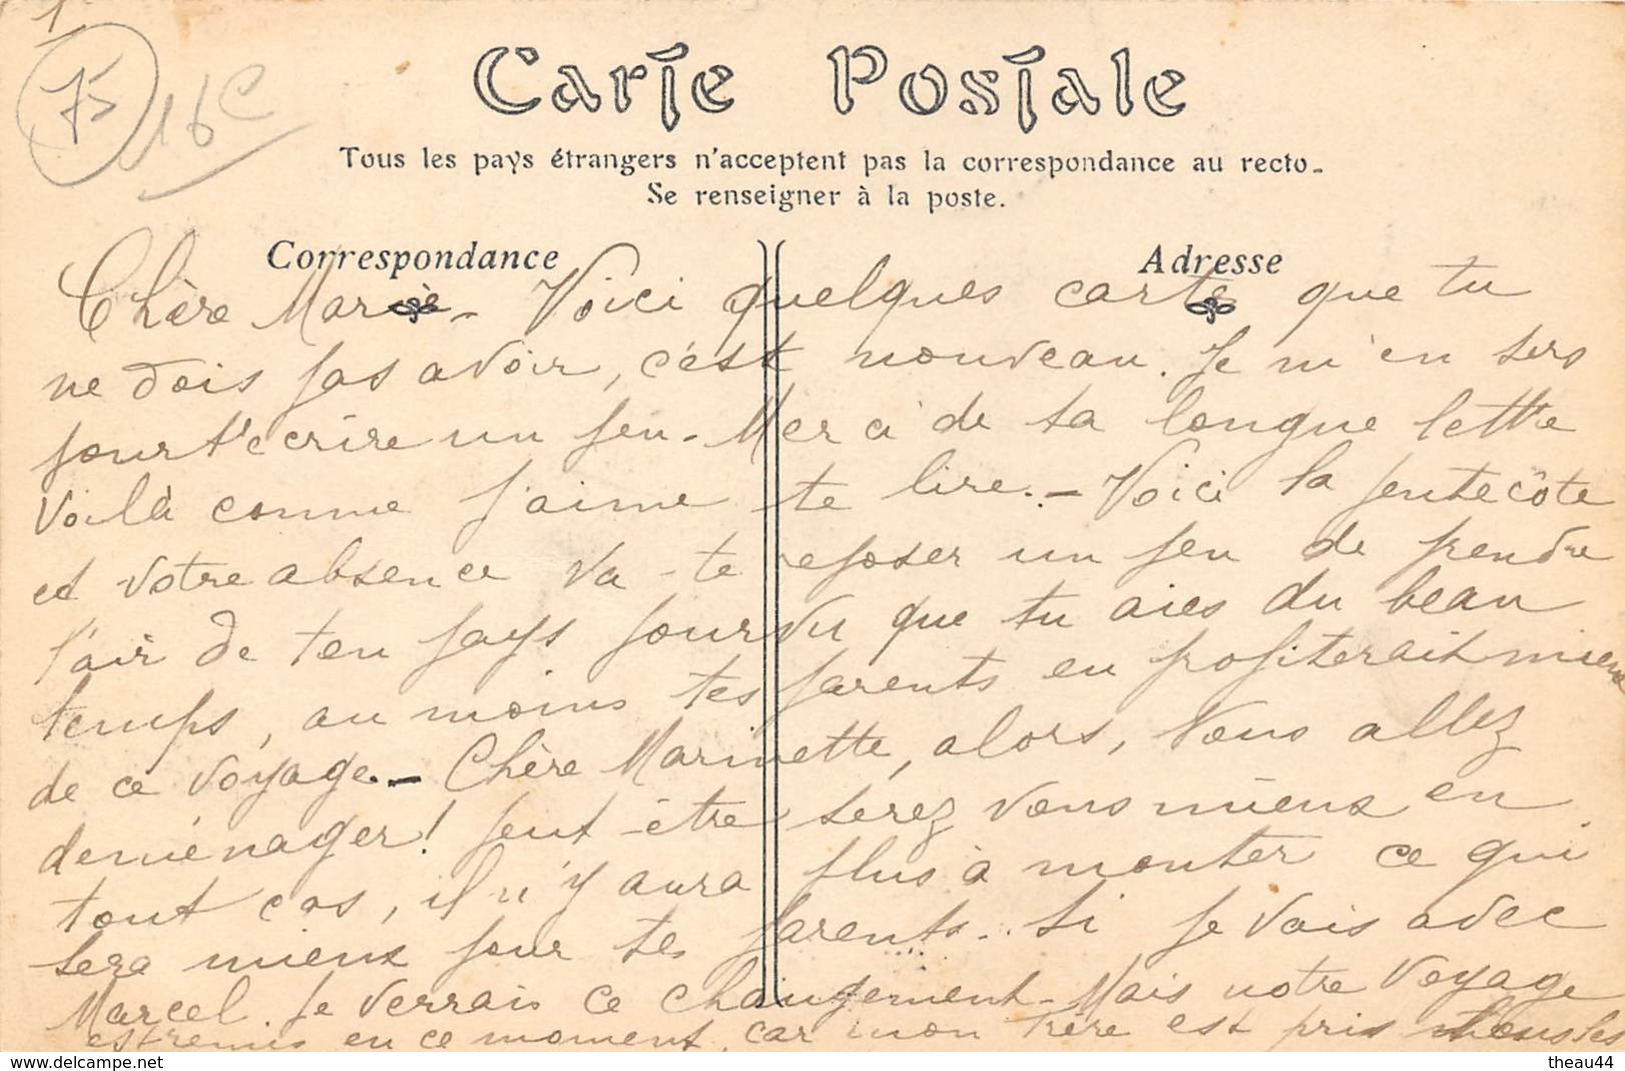 1
75
16C
Carte Postale
Tous les pays étrangers n'acceptent pas la correspondance au recto.
Se renseigner à la poste.
Correspondance
Adresse
Chère Marie - Voici quelques carte que tu
ne dois pas avoir, c'est nouveau. Je m'en sers
pour t'écrire un peu - Merci de ta longue lettre
voilà comme j'aime te lire. - Voici la pentecôte
et votre absence va-te reposer un peu de prendre
l'air de ton pays pourvu que tu aies du beau
temps, au moins tes parents en profiterait mieux
de ce voyage. - Chère Marinette, alors, vous allez
déménager! peut-être serez vous mieux en
tout cas, il n'y aura plus à monter ce qui
sera mieux pour tes parents. Si je vais avec
Marcel je verrais ce changement - Mais notre voyage
est remis en ce moment, car mon frère est pris tous les
delcampe.net
theau44